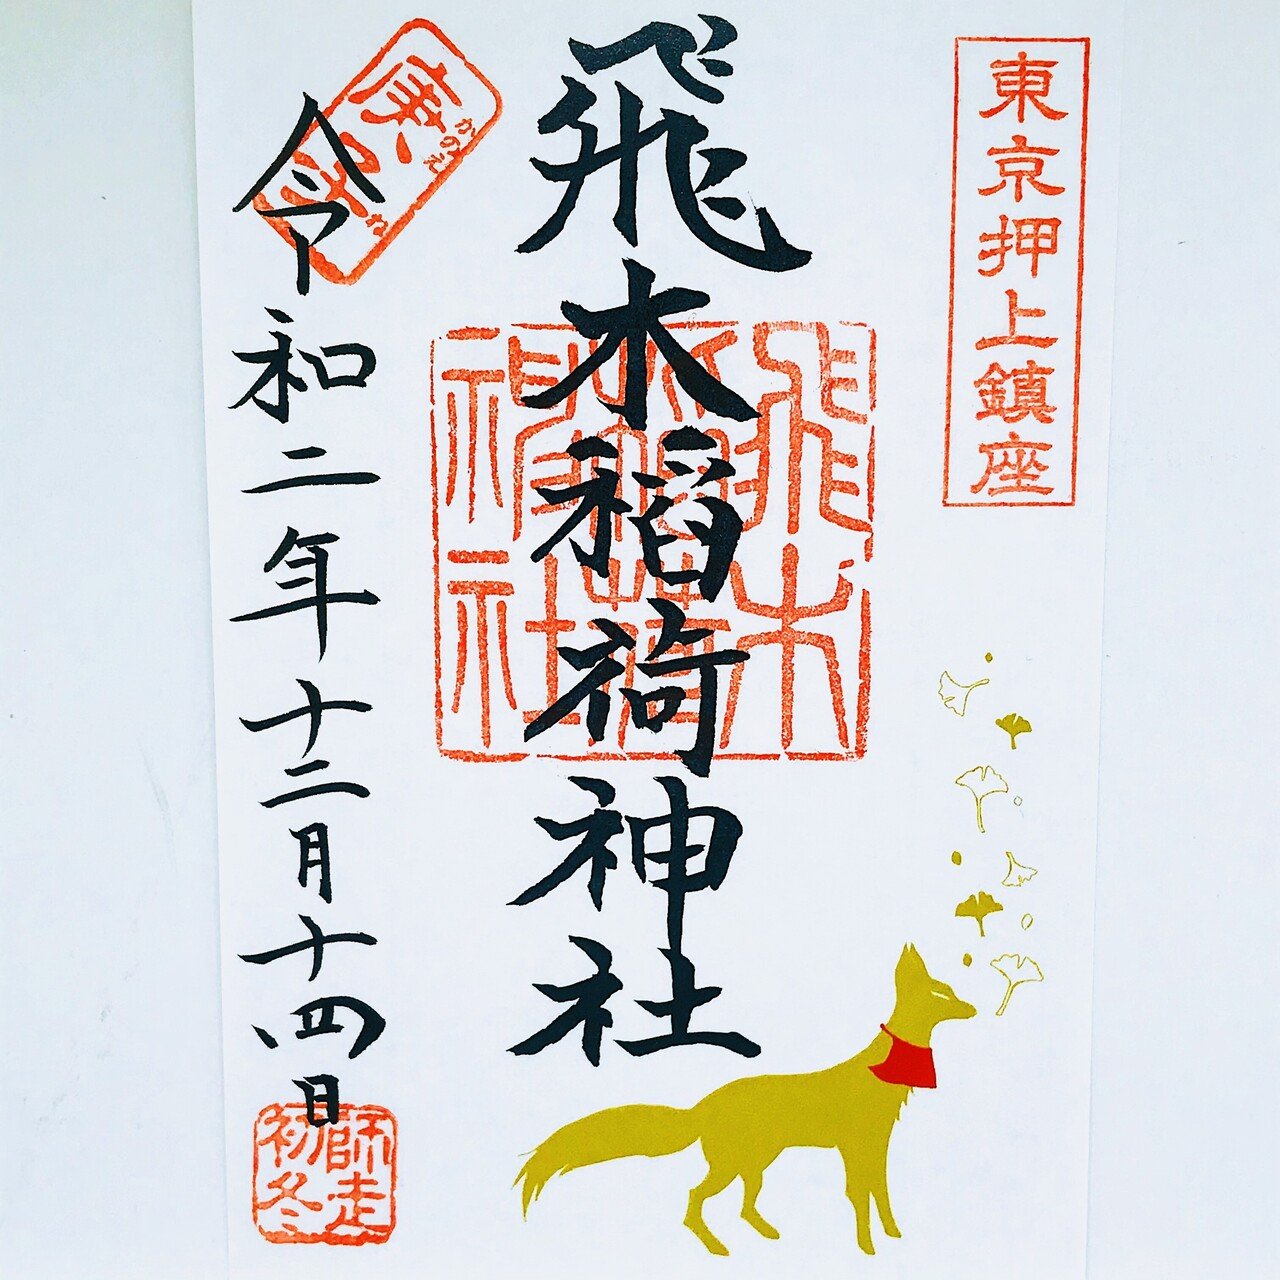 東京押上鎮座
飛木稲荷神社
飛木
稲荷
神社
庚子
かのえ
ね
令和二年十二月十四日
師走
初冬